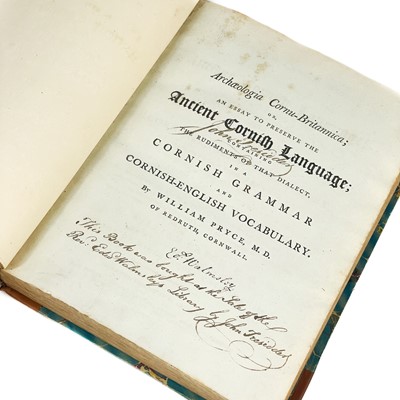 Archæologia Cornu-Britannica;
OR,
AN ESSAY TO PRESERVE THE
Ancient Cornish Language;
CONTAINING
John Tresidder
THE RUDIMENTS OF THAT DIALECT,
IN A
CORNISH GRAMMAR
AND
CORNISH-ENGLISH VOCABULARY.
BY WILLIAM PRYCE, M.D.
OF REDRUTH, CORNWALL.
E Walmsley
This Book was bought at the Sale of the
Rev. Edd. Walmsleys Library by John Tresidder